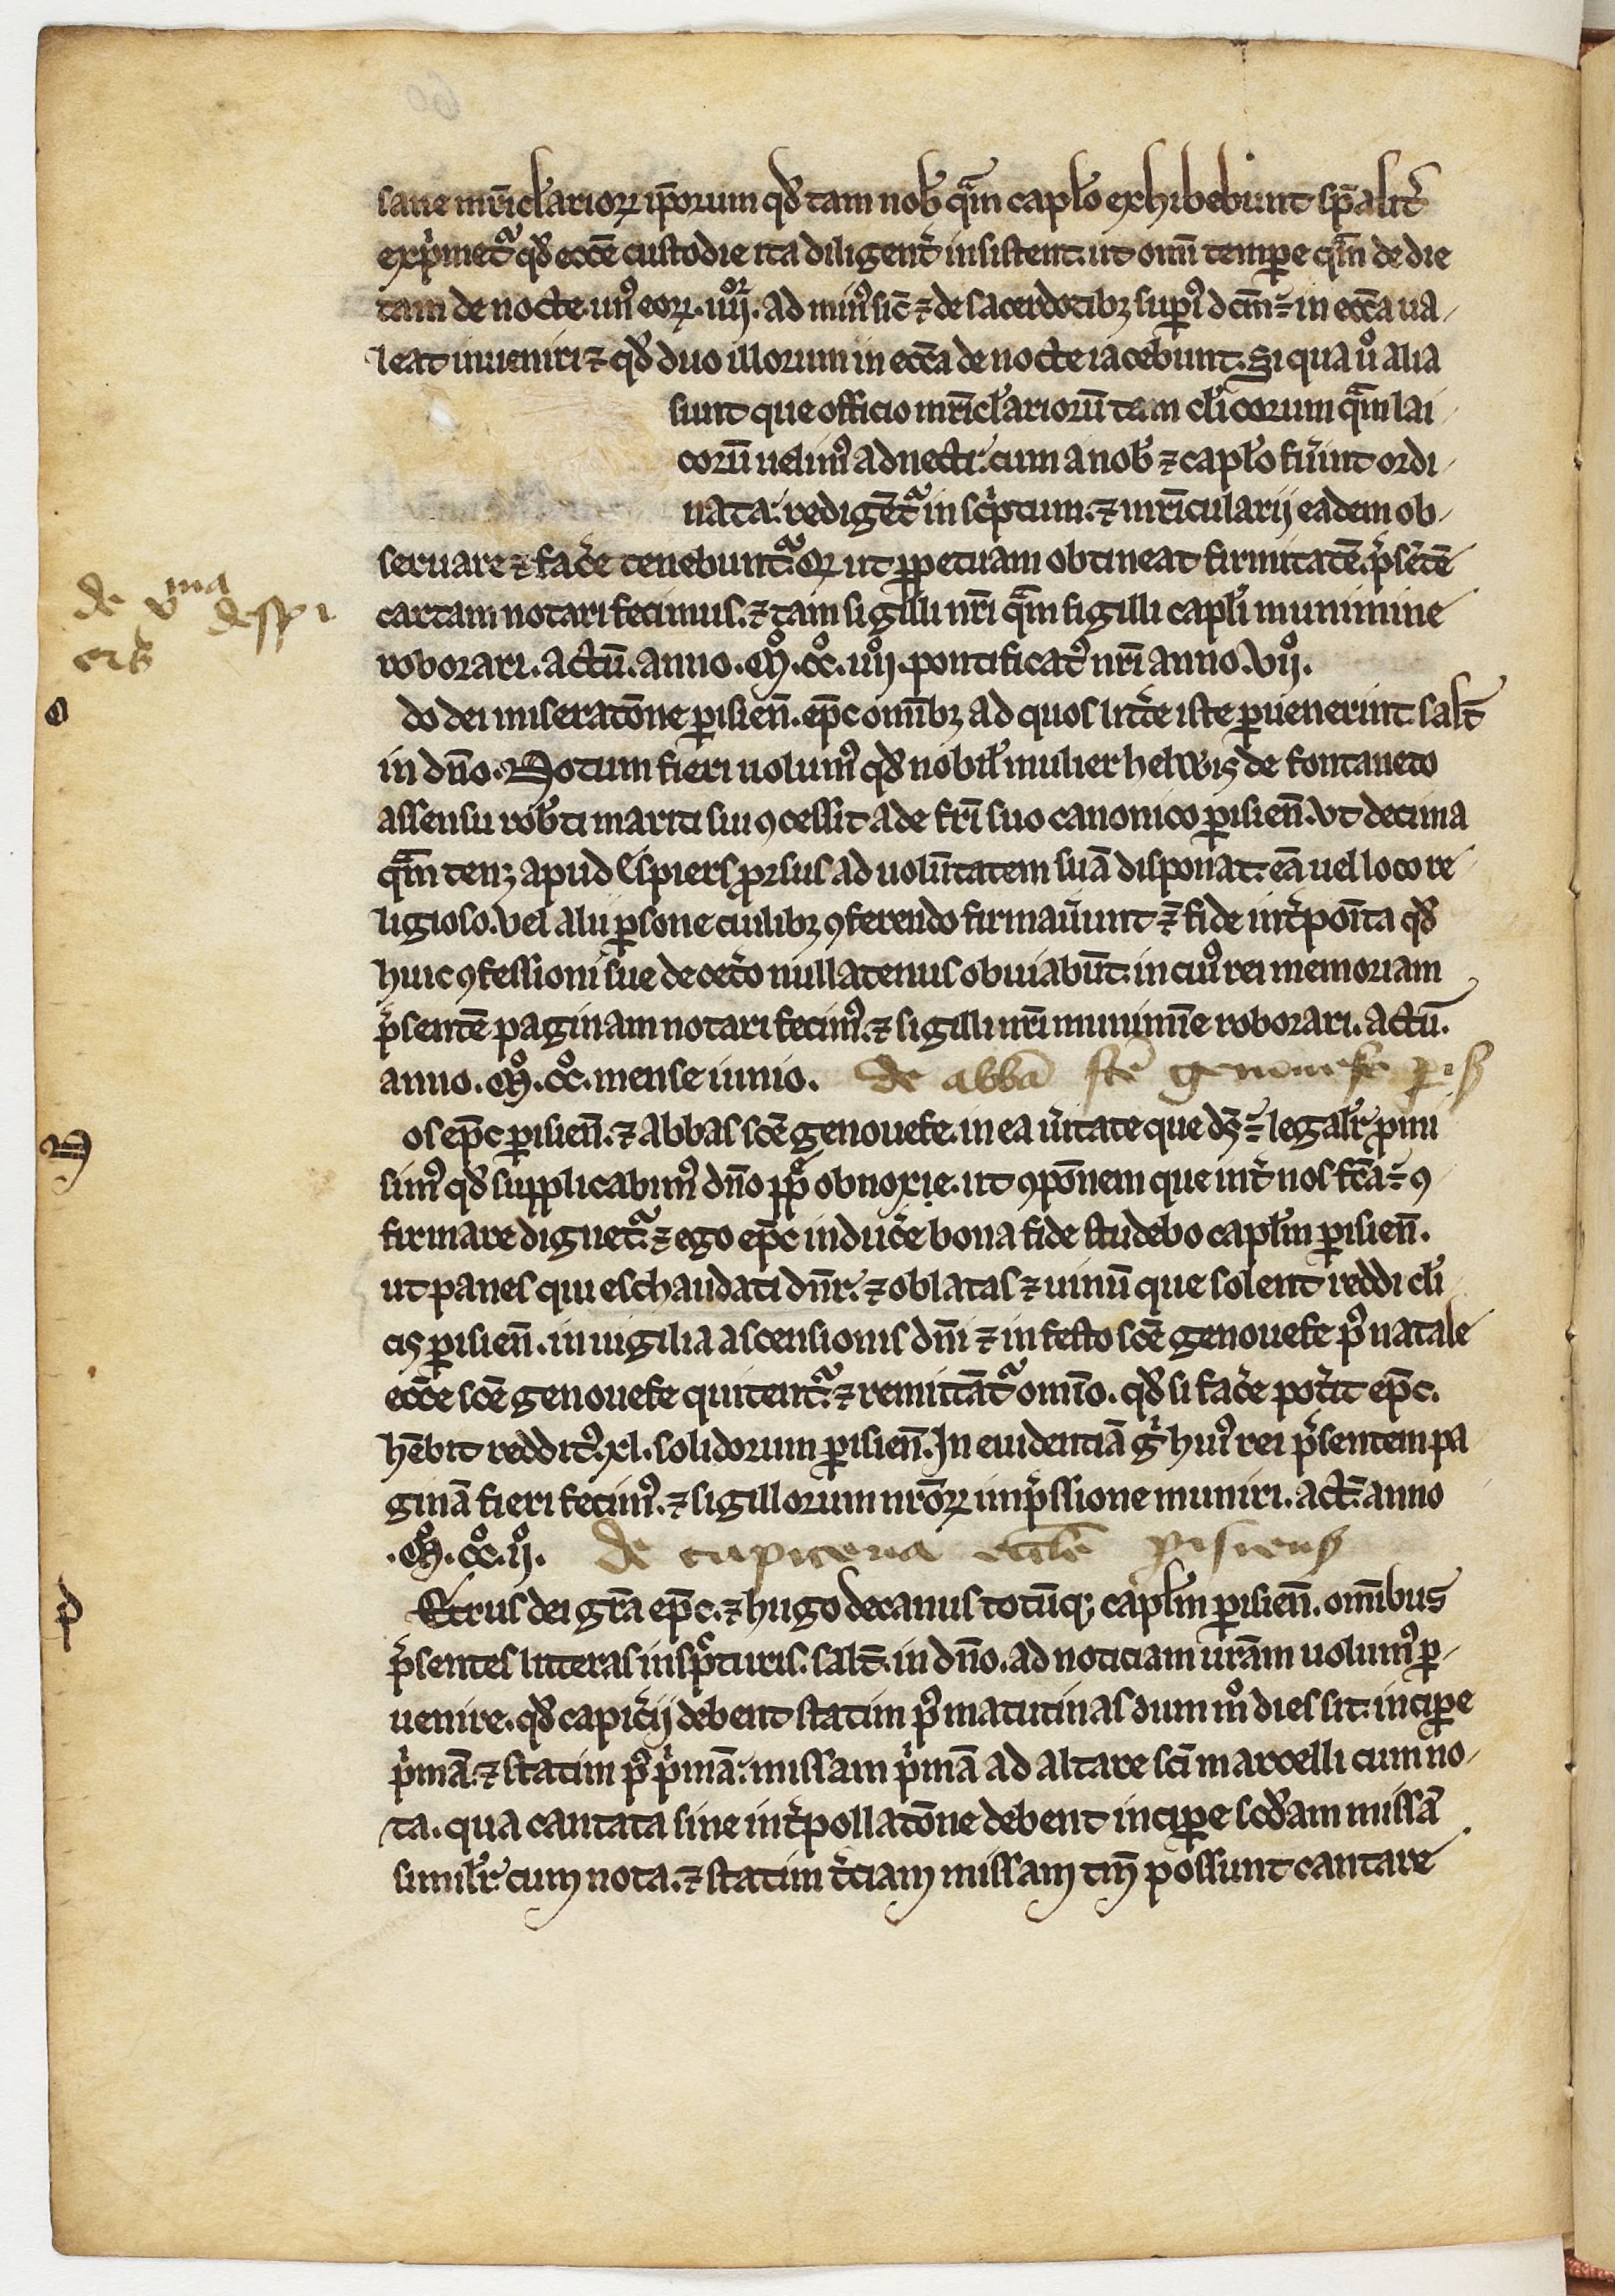 sane mr̃icl̃arioꝝ ip̃orum qd̾ tam nob̾ qᷓm capl̃o exhibebunt sp̃alit̾
exp̾met᷑ qd̾ eccẽ custodie ita diligent̾ insistent. ut om̃i temꝑe qᷓm de die
tam de nocte un᷒ eoꝝ .iiijor. ad min᷒ sic̃ ⁊ de sacerdotibꝫ sup᷒i᷒ dcm̃ ÷ in ecc̃a ua-
leat inueniri ⁊ qd̾ duo illorum in ecc̃a de nocte iacebunt. Si qua uͦ alia
sunt que officio mr̃icl̃arioru᷑ tam cl̾icorum qᷓm lai
corũ uelim᷒ adnecti. cum a nob̾ ⁊ capl̃o fu̾int ordi
nata: redigẽt᷑ in sc̾ptum. ⁊ mr̃icularij eadem ob-
seruare ⁊ fac̾e tenebunt᷑. Qꝫ ut ꝑpetuam obtineat firmitatẽ. p̾sẽtẽ
cartam notari fecimus. ⁊ tam sigilli nr̃i qᷓm sigilli capl̾i munimine
roborari. actũ. anno. Mͦ. CCͦ. iiijͦ. pontificat᷒ nr̃i anno. vijͦ.
de vma despi
ers
o
do dei miserat̃one ꝑisieñ. ep̃c om̃ibꝫ ad quos litt̾e iste ꝑuenerint salt̃
in dño. Notum fieri uolum᷒ qd̾ nobil̾ mulier helwis de fontaneto
assensu rob̾ti mariti sui ꝯcessit ade fr̃i suo canonico ꝑisieñ. Vt decima
qᷓm tenꝫ apud Espiers ꝓrsus ad uolũtatem suã disponat. eã uel loco re
ligioso. Vel alii ꝑsone cuilibꝫ ꝯferendo firmau̾unt ⁊ fide int̾poita qd̾
huic ꝯfessioni sue de cet̾o nullatenus obuiabũt. in cui᷒ rei memoriam
p̾sentẽ paginam notari fecim᷒. ⁊ sigilli nr̃i munimĩe roborari. actũ.
anno. Mͦ. CCͦ. mense iunio. de abbã stẽ genouefe pis
N
os ep̃c ꝑisieñ. ⁊ abbas scẽ genouefe. in ea u̾itate que dꝫ ÷ legalr̾ ꝓmi
sim᷒ qd̾ supplicabim᷒ dño pp̃ obnoxie. ut ꝯpõnem que int̾ nos fc̃a ÷ ꝯ
firmare dignet᷑. ⁊ ego ep̃c induc̾e bona fide studebo capl̾m ꝑisieñ.
ut panes qui eschaudati dñr. ⁊ oblatas ⁊ uinũ que solent reddi cl̾i
cis ꝑisieñ. in uigilia ascensionis dñi ⁊ in festo scẽ genouefe p᷒ natale
ecc̃e scẽ genouefe quitent᷑. ⁊ remittãt᷑ omĩo. qd̾ si fac̾e pot̾it ep̃c.
hẽbit reddit᷒ .xl. solidorum ꝑisieñ. In euidentiã g̾ hui᷒ rei p̾sentem pa
ginã fieri fecim᷒. ⁊ sigillorum nr̃oꝝ imp̾ssione muniri. act̃. anno
.Mͦ. CCͦ. ijͦ. de capiceria eccl̃e pisiens
p
Etrus dei gr̃a ep̃c. ⁊ hugo decanus totũqꝫ capl̾m ꝑisieñ. om̃ibus
p̾sentes litteras insp̾cturis. salt̃. in dño. ad noticiam ur̃am uolum᷒ ꝑ-
uenire. qd̾ capic̾ij debent statim p᷒ matutinas dum mͦ dies sit. inciꝑe
p̾mã. ⁊ statim p᷒ p̾mã: missam p̾mã ad altare sc̃i marcelli cum no-
ta. qua cantata sine int̾pollat̃one debent inciꝑe scd̾am missã
similr̾ cum nota. ⁊ statim t̾ciam missam tm̃ possunt cantare